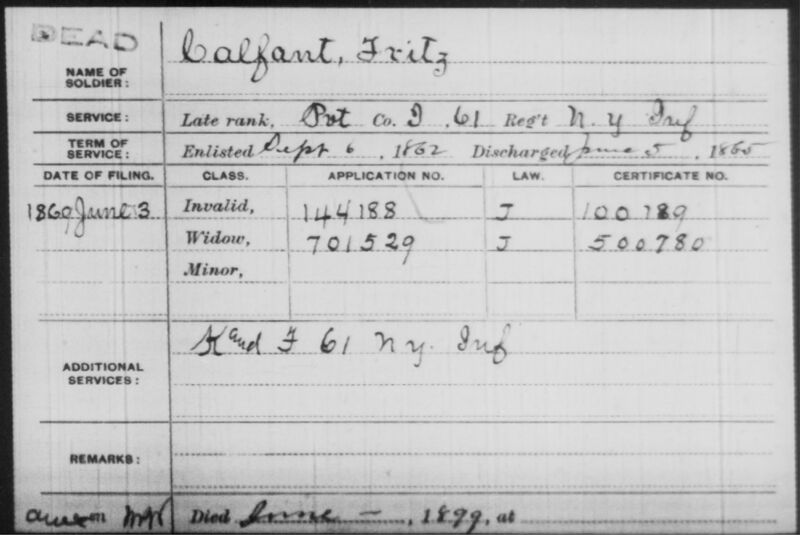 DEAD
NAME OF SOLDIER: Calfant, Fritz
SERVICE: Late rank, Pvt Co. I, 61 Reg't N. Y Inf
TERM OF SERVICE: Enlisted Sept 6, 1862 Discharged June 5, 1865
DATE OF FILING. CLASS. APPLICATION NO. LAW. CERTIFICATE NO.
1869 June 3 Invalid, 144188 J 100789
Widow, 701529 J 500780
Minor,
ADDITIONAL SERVICES: K and F 61 N y. Inf
REMARKS:
Died June —, 1899, at